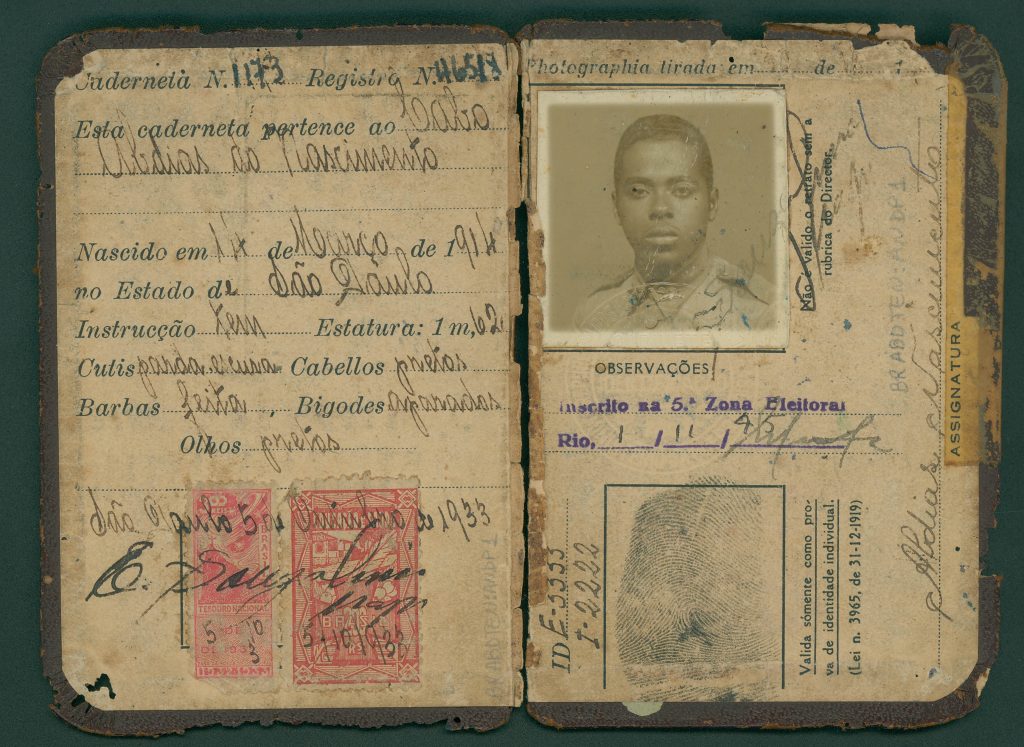 Caderneta N. 1173 Registro N. 
Esta caderneta pertence ao Cabo
Abdias do Nascimento
Nascido em 14 de Março de 1914
no Estado de São Paulo
Instrucção tem Estatura: 1 m, 62
Cutis parda escura Cabellos pretos
Barbas feita, Bigodes aparados
Olhos pretos
São Paulo 5 de de 1933
TESOURO NACIONAL
BRASIL
5/10/933
Photographia tirada em de 1
Não é valido o retrato sem a
rubrica do Director.
OBSERVAÇÕES
Inscrito na 5.ª Zona Eleitoral
Rio, 1 / 11 / 45
ID E-3333
I-2222
Valida sómente como pro-
va de identidade individual.
(Lei n. 3965, de 31-12-1919)
Abdias do Nascimento
ASSIGNATURA